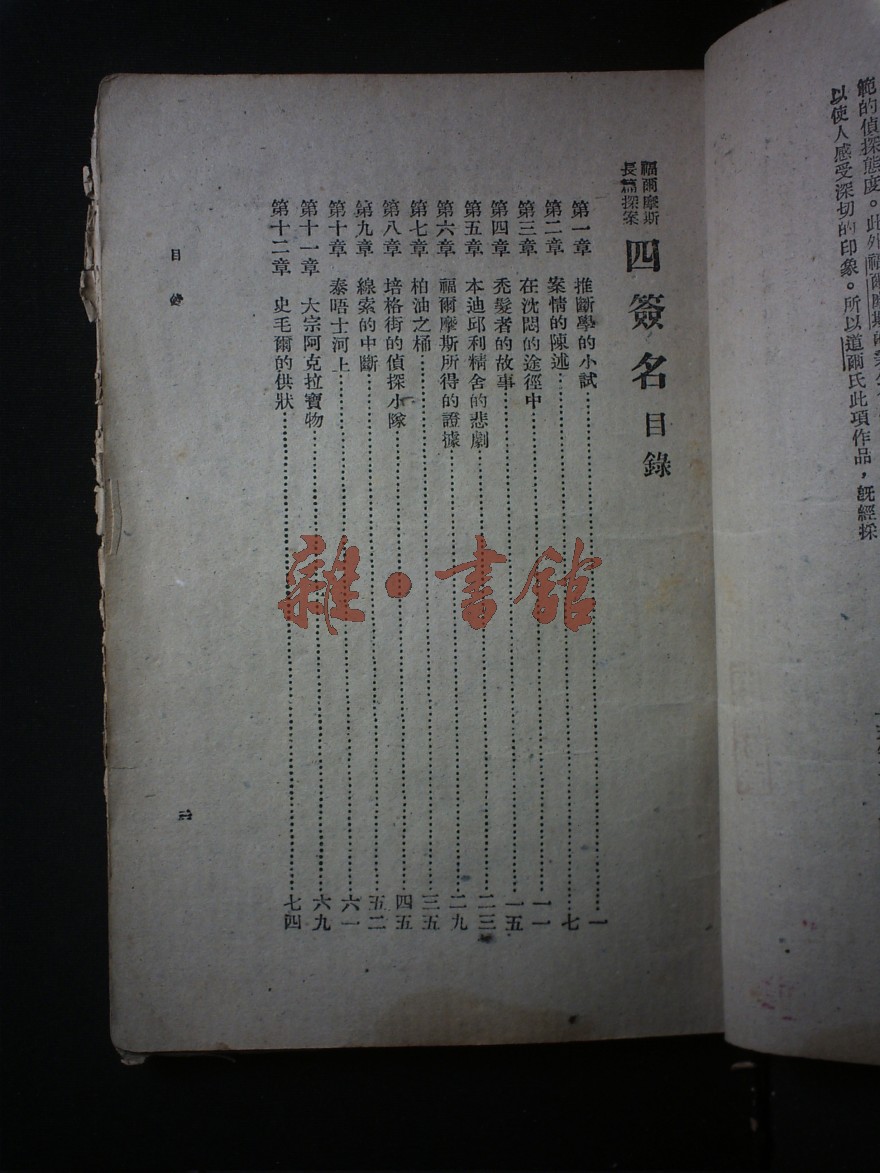 範的偵探態度。此外福爾摩斯
以使人感受深切的印象。所以道爾氏此項作品，旣經採
福爾摩斯
長篇探案
四簽名目錄
第一章 推斷學的小試……一
第二章 案情的陳述……七
第三章 在沈悶的途徑中……一一
第四章 禿髮者的故事……一五
第五章 本迪邱利精舍的悲劇……二三
第六章 福爾摩斯所得的證據……二九
第七章 柏油之桶……三五
第八章 培格街的偵探小隊……四五
第九章 線索的中斷……五二
第十章 泰晤士河上……六一
第十一章 大宗阿克拉寶物……六九
第十二章 史毛爾的供狀……七四
目錄
雜·書館